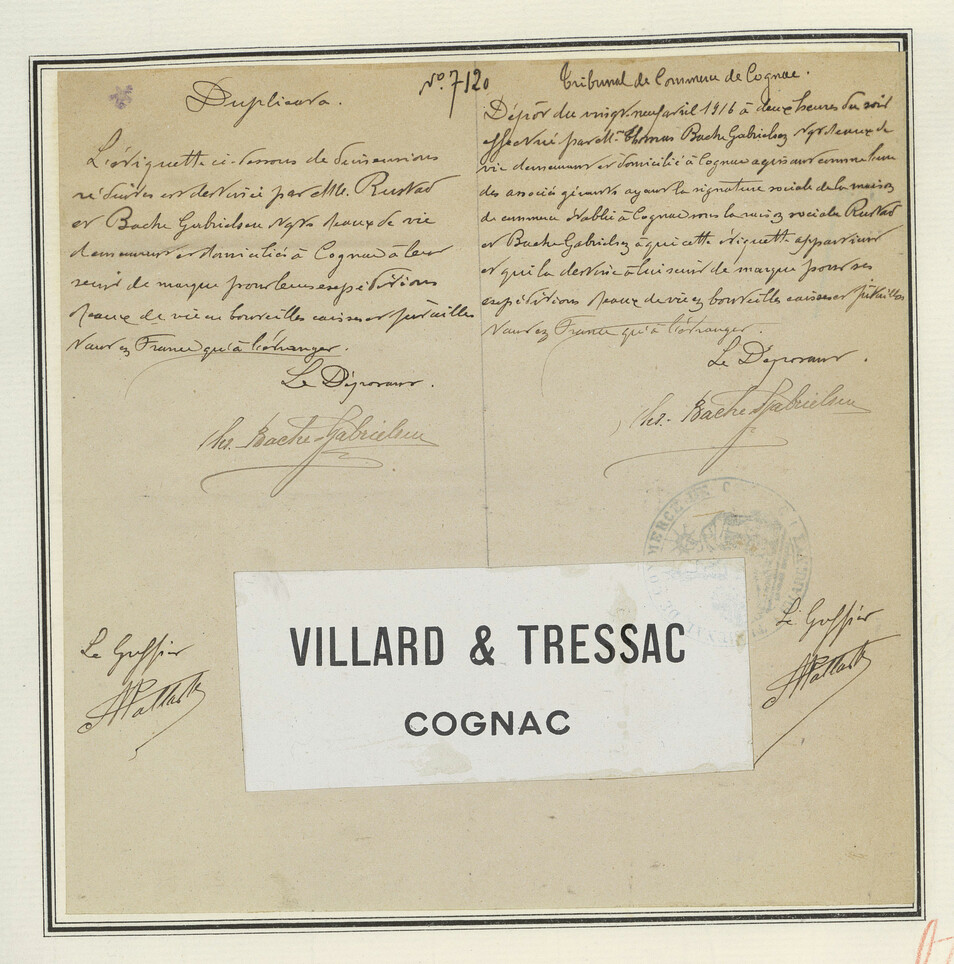 Duplicata.
L'étiquette ci-dessous de dimensions
réduites est destinée par MM. Rustad
et Bache Gabrielsen Ngts d'eaux de vie
demeurant et domiciliés à Cognac à leur
servir de marque pour leurs expéditions
d'eaux de vie en bouteilles caisses et futailles
tant en France qu'à l'étranger.
Le Déposant.
Ths. Bache-Gabrielsen
Le Greffier
No. 7120
Tribunal de Commerce de Cognac.
Dépôt du vingt neuf avril 1916 à deux heures du soir
effectué par M. Thomas Bache Gabrielsen Ngt d'eaux de
vie demeurant et domicilié à Cognac agissant comme l'un
des associés gérants ayant la signature sociale de la maison
de commerce établie à Cognac sous la raison sociale Rustad
et Bache Gabrielsen à qui cette étiquette appartient
et qui la destine à lui servir de marque pour ses
expéditions d'eaux de vie en bouteilles caisses et futailles
tant en France qu'à l'étranger.
Le Déposant.
Ths. Bache-Gabrielsen
Le Greffier
VILLARD & TRESSAC
COGNAC